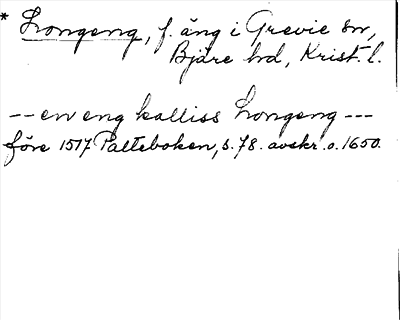 * Longeng, f. äng i Grevie sn,
Bjäre hd, Krist. l.
-- en eng kalliss Longeng ---
före 1517 Palteboken, s. 78. avskr. o. 1650.